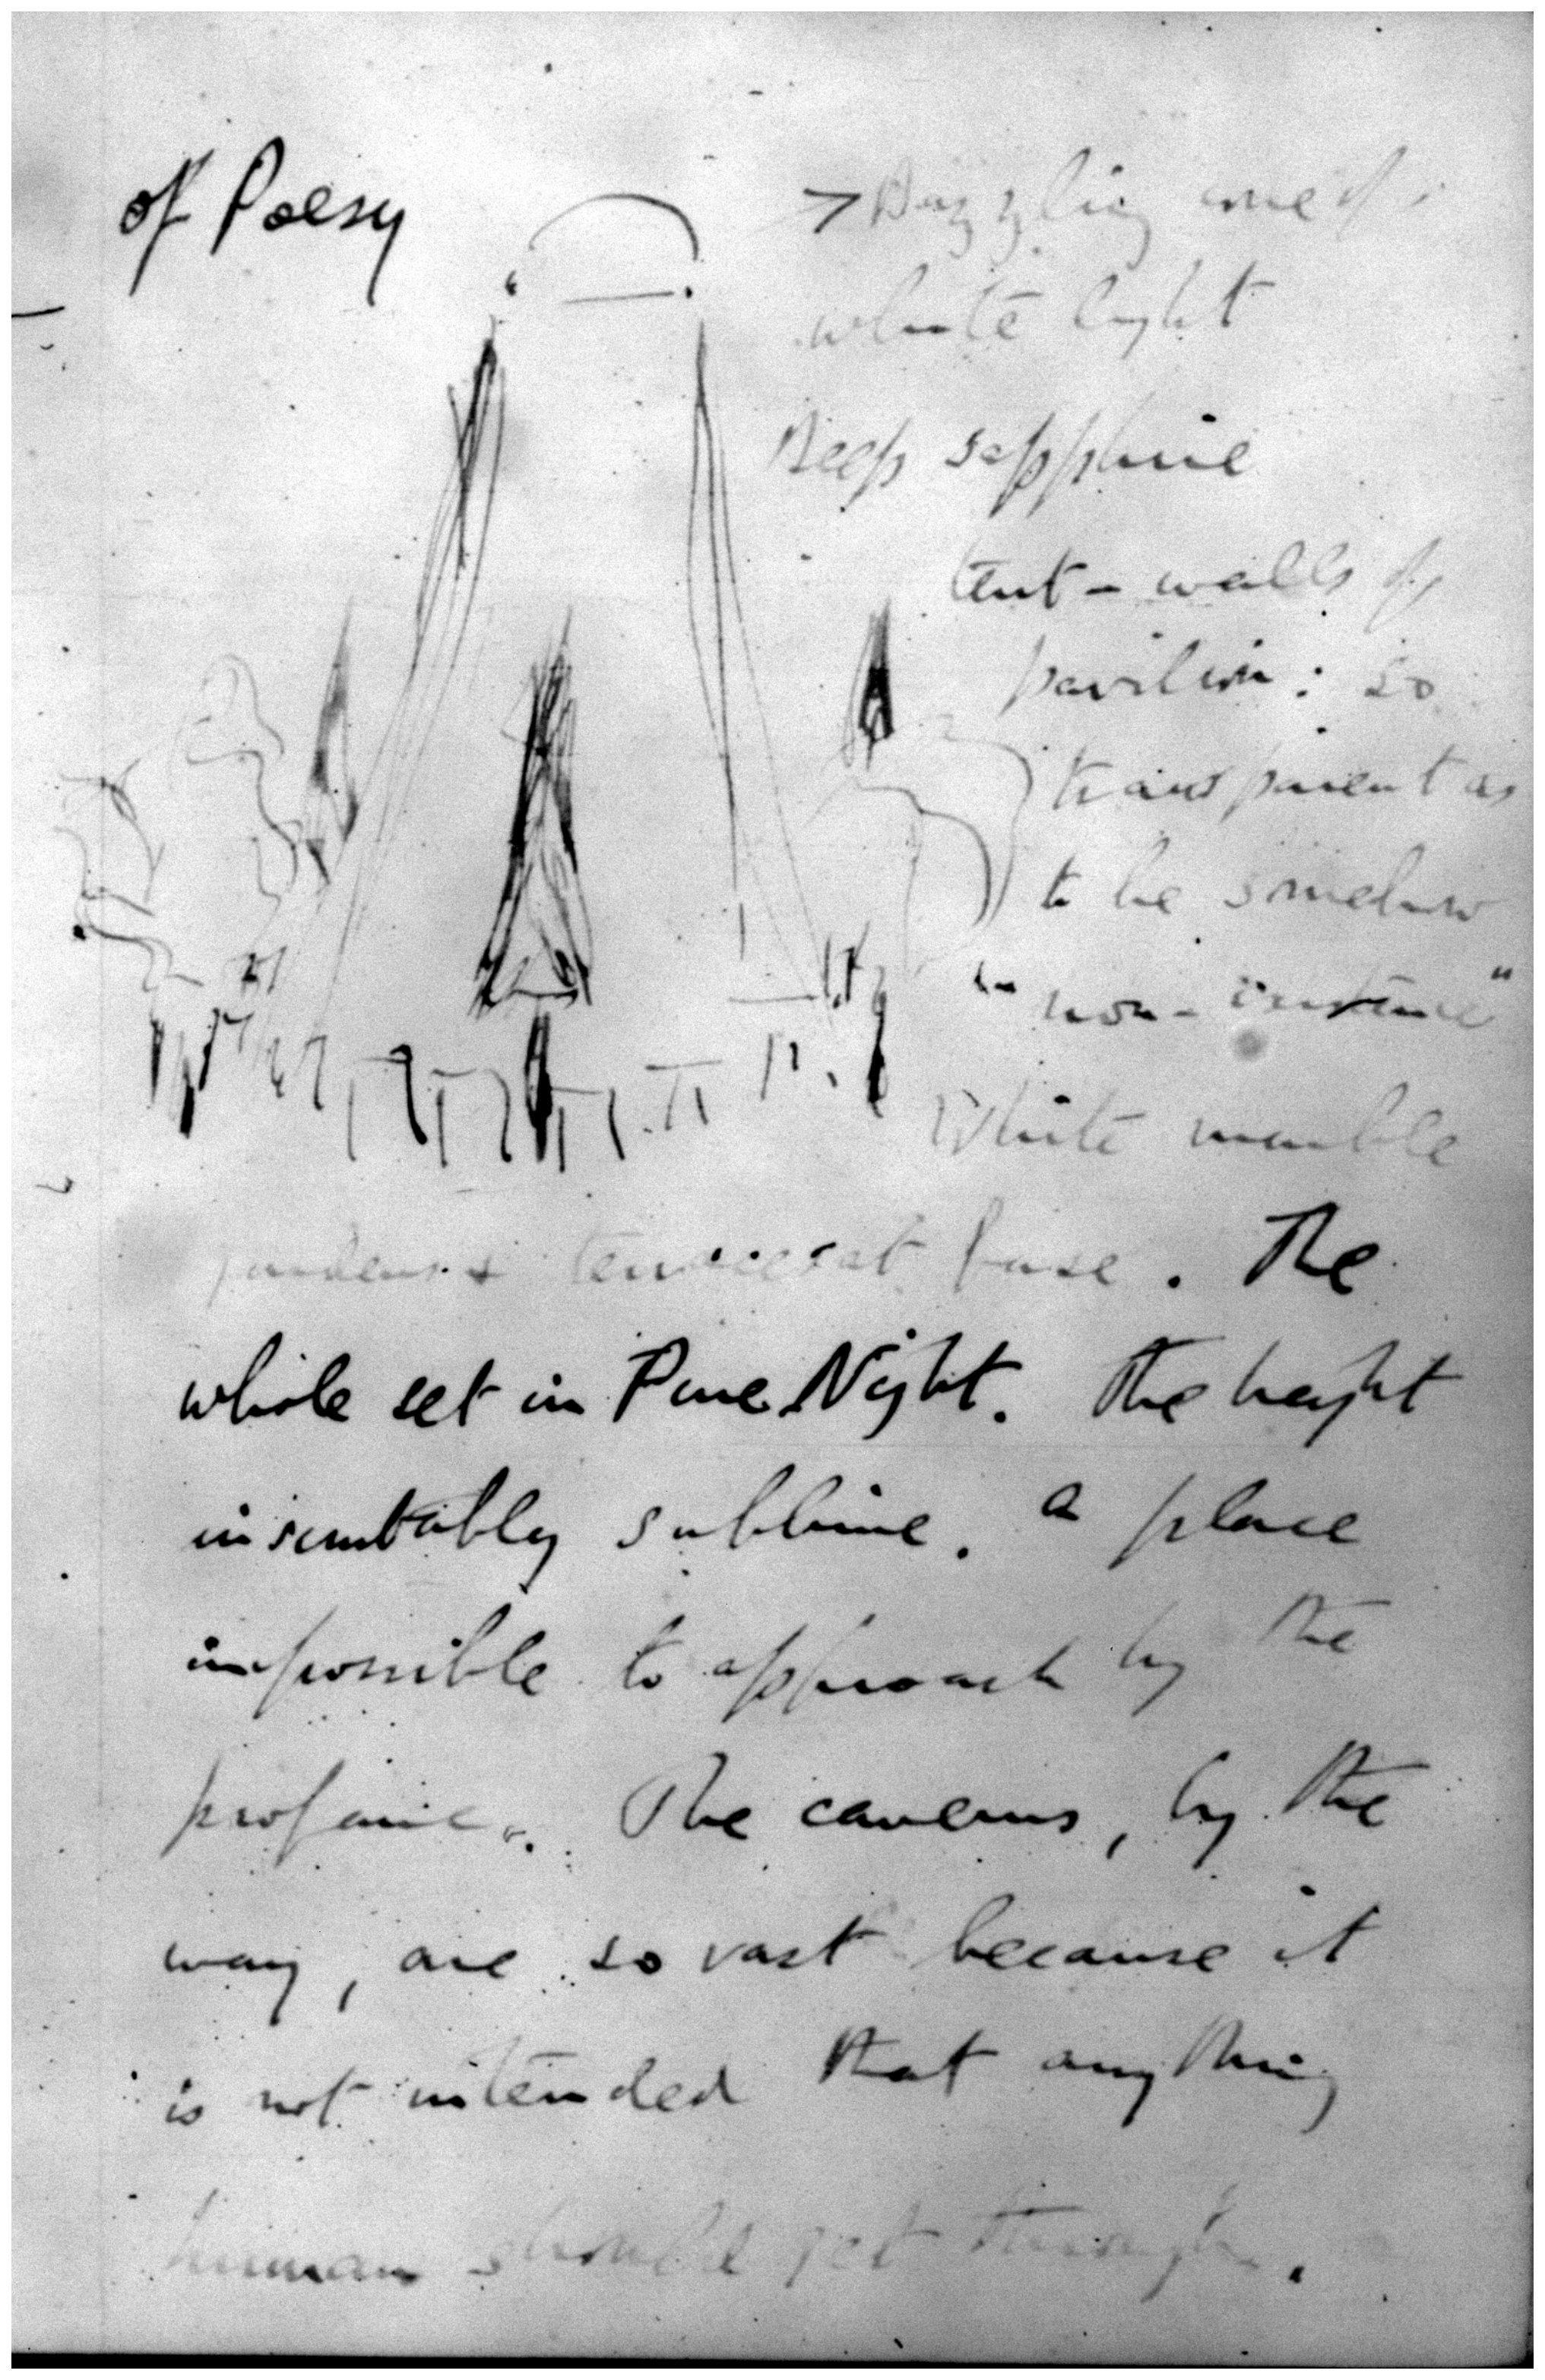 of Poesy
Dazzling cone of
white light
Deep sapphire
tent-walls of
pavilion: so
transparent as
to be somehow
"non-existence"
White marble
gardens & terraces at base. The
whole set in Pure Night. The height
inscrutably sublime. A place
impossible to approach by the
profane. The caverns, by the
way, are so vast because it
is not intended that anything
human should get through.